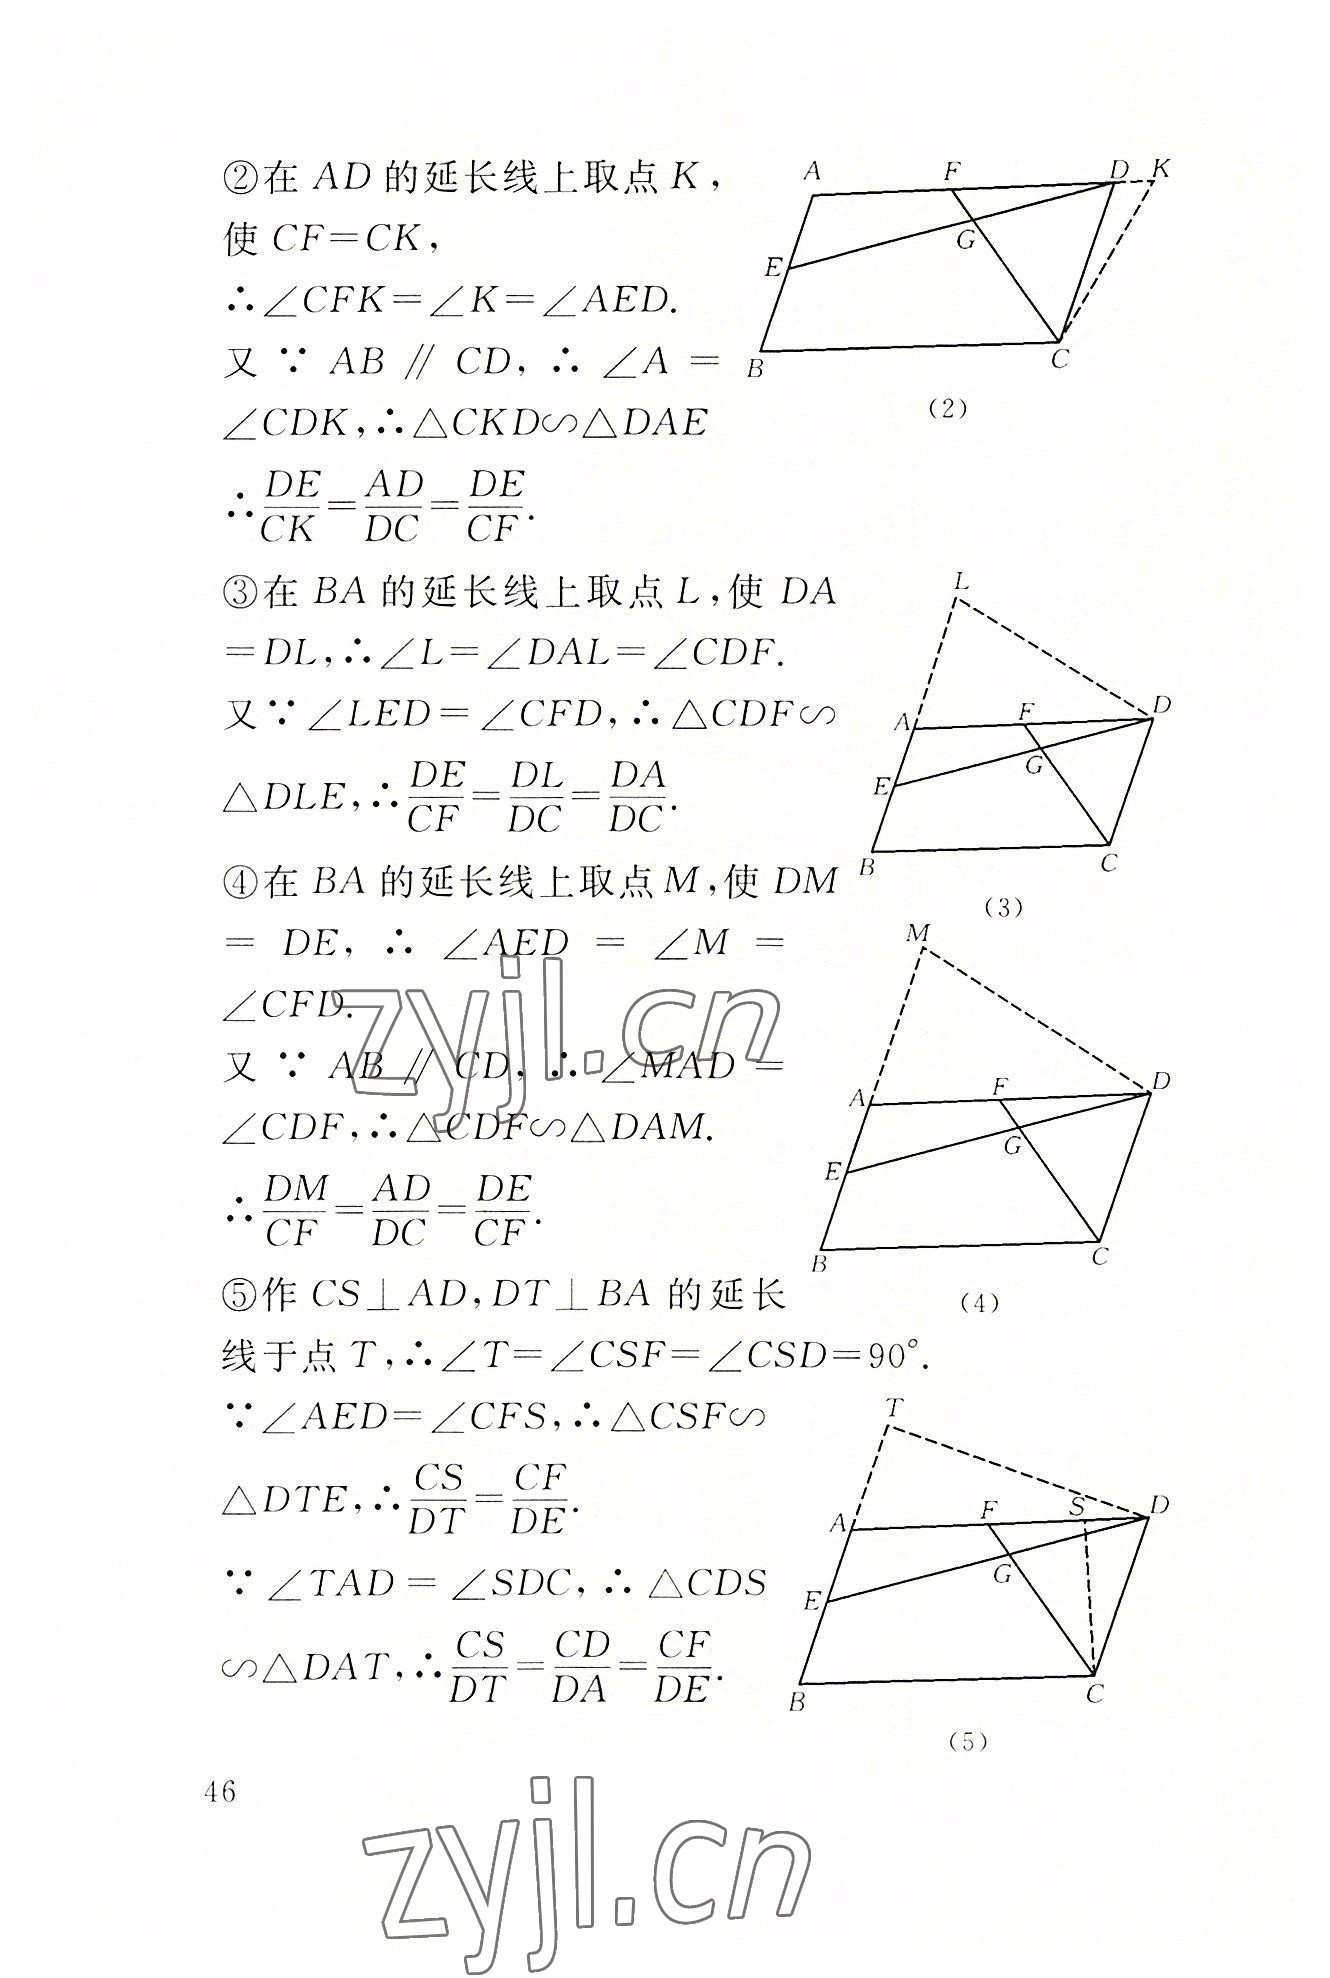 ②在 AD 的延长线上取点 K,
使 CF=CK,
∴∠CFK=∠K=∠AED.
又∵ AB∥CD,∴∠A=
∠CDK,∴△CKD∽△DAE
∴DE/CK=AD/DC=DE/CF.
A F D K
E G
B C
(2)
③在 BA 的延长线上取点 L,使 DA
=DL,∴∠L=∠DAL=∠CDF.
又∵∠LED=∠CFD,∴△CDF∽
△DLE,∴DE/CF=DL/DC=DA/DC.
L
A F D
E G
B C
(3)
④在 BA 的延长线上取点 M,使 DM
=DE,∴∠AED=∠M=
∠CFD.
又∵ AB∥CD,∴∠MAD=
∠CDF,∴△CDF∽△DAM.
∴DM/CF=AD/DC=DE/CF.
M
A F D
E G
B C
(4)
⑤作 CS⊥AD,DT⊥BA 的延长
线于点 T,∴∠T=∠CSF=∠CSD=90°.
∵∠AED=∠CFS,∴△CSF∽
△DTE,∴CS/DT=CF/DE.
∵∠TAD=∠SDC,∴△CDS
∽△DAT,∴CS/DT=CD/DA=CF/DE.
T
A F S D
E G
B C
(5)
46
zyjl.cn
zyjl.cn